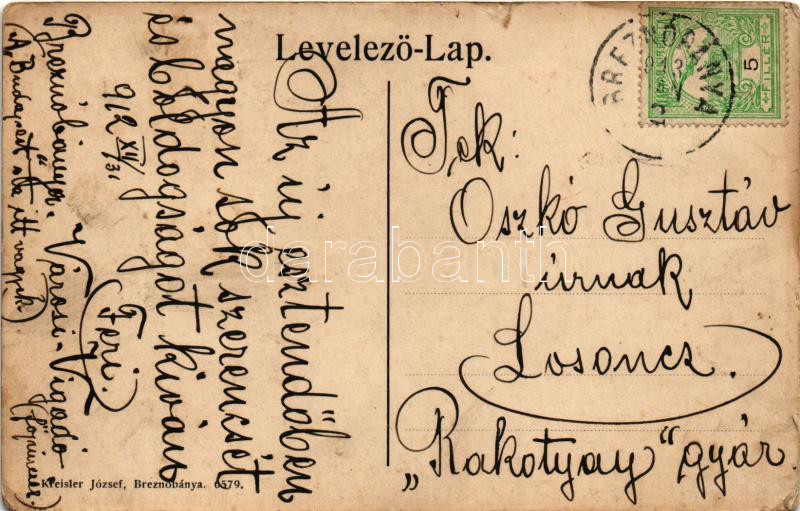 Levelező-Lap.
Az új esztendőben
nagyon sok szerencsét
és boldogságot kíván
912 XII/31
Feri.
Breznóbánya. Városi-Vigadó
(főpincér.)
(A „Budapest"-ba itt vagyok)
Tek:
Oszkó Gusztáv
úrnak
Losoncz.
„Rakotyay" gyár.
BREZNÓBÁNYA
5
FILLÉR
Kreisler József, Breznóbánya. 6579.
darabanth